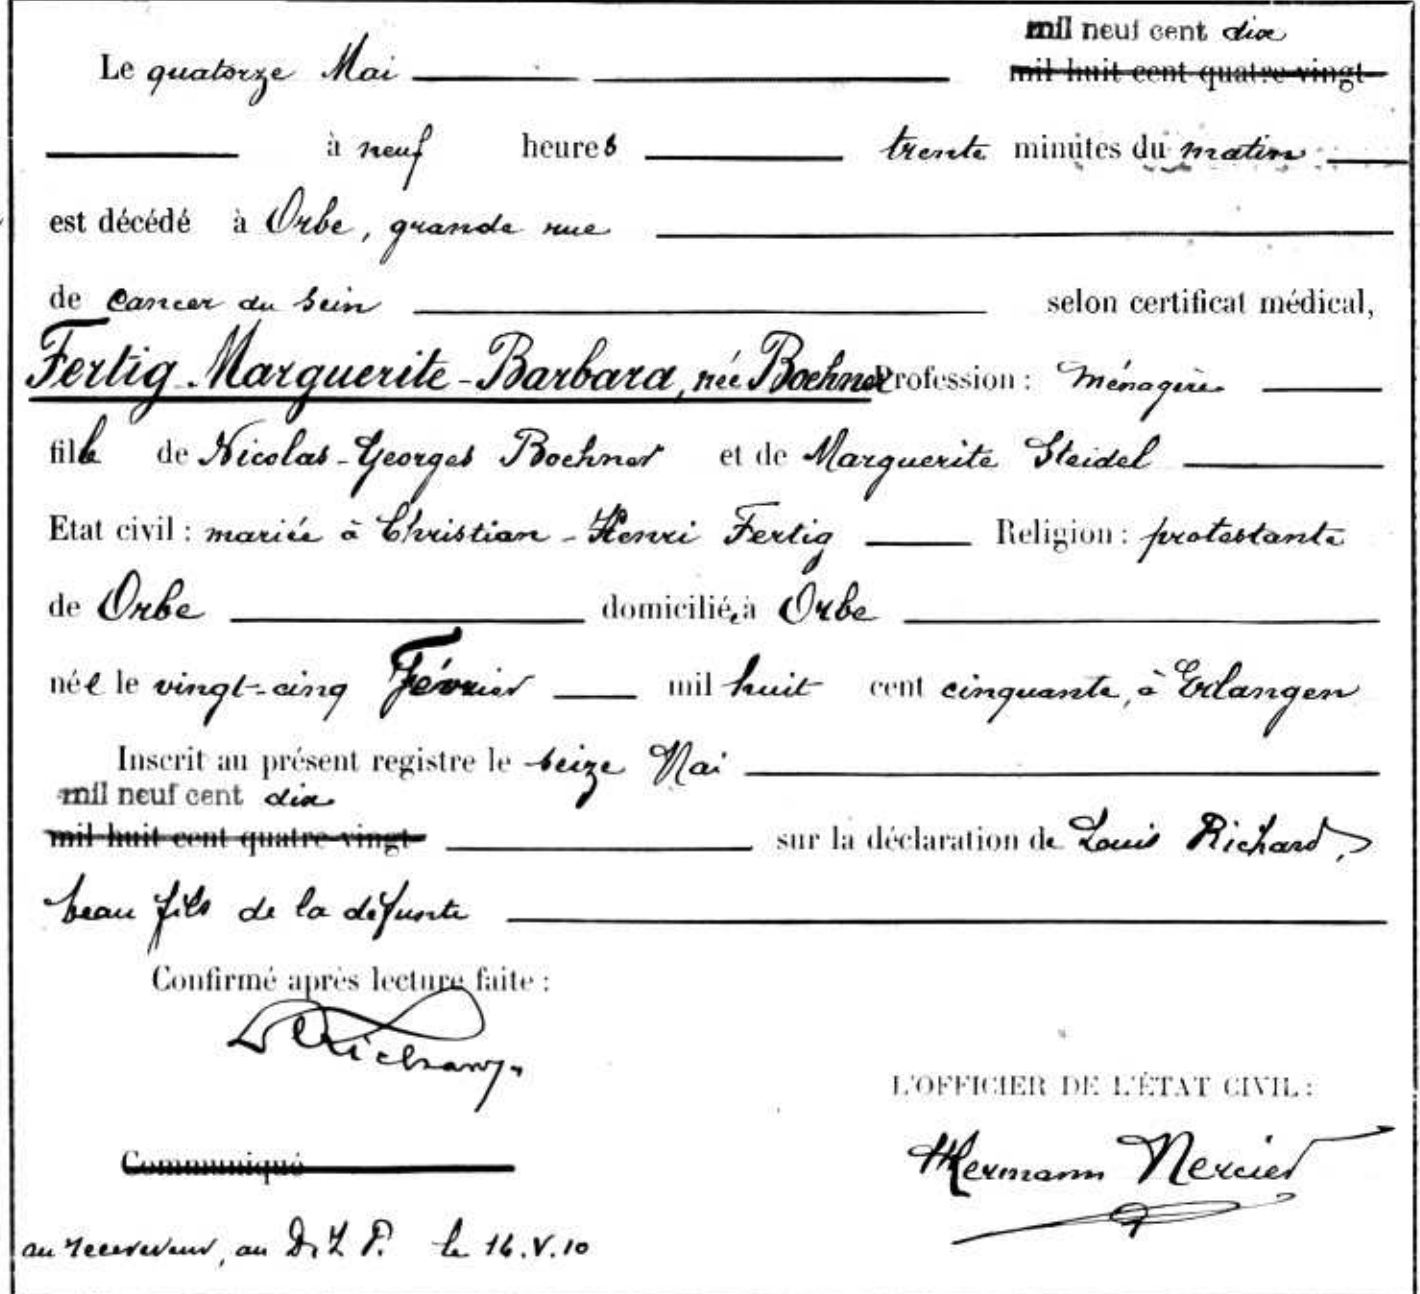 mil neuf cent dix
Le quatorze Mai mil huit cent quatre-vingt-
à neuf heures trente minutes du matin
est décédé à Orbe, grande rue
de cancer du sein selon certificat médical,
Fertig Marguerite-Barbara, née Boehner Profession : Ménagère
fille de Nicolas-Georges Boehner et de Marguerite Steidel
Etat civil : mariée à Christian-Henri Fertig Religion : protestante
de Orbe domiciliée à Orbe
née le vingt-cinq Février mil huit cent cinquante, à Erlangen
Inscrit au présent registre le seize Mai
mil neuf cent dix
mil huit cent quatre-vingt- sur la déclaration de Louis Richard,
beau fils de la défunte
Confirmé après lecture faite :
L Richard
L'OFFICIER DE L'ÉTAT CIVIL :
Communiqué
Hermann Mercier
au receveur, au le 16.V.10